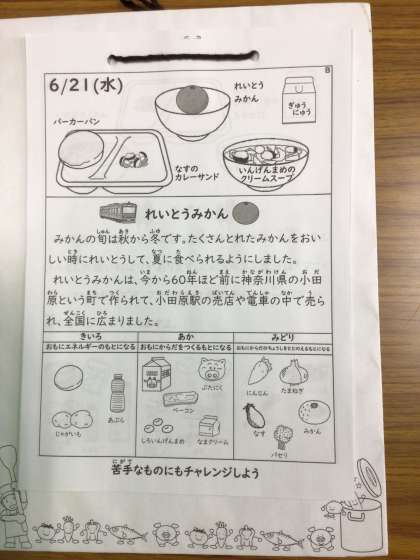 B
6/21(水)
れいとう
みかん
ぎゅう
にゅう
バーカーパン
なすの
カレーサンド
いんげんまめの
クリームスープ
れいとうみかん
みかんの旬は秋から冬です。たくさんとれたみかんをおい
しい時にれいとうして、夏に食べられるようにしました。
れいとうみかんは、今から60年ほど前に神奈川県の小田
原という町で作られて、小田原駅の売店や電車の中で売ら
れ、全国に広まりました。
きいろ あか みどり
おもにエネルギーのもとになる おもにからだをつくるもとになる おもにからだのちょうしをととのえるもとになる
じゃがいも あぶら ぶたにく ベーコン しろいんげんまめ なまクリーム にんじん たまねぎ なす みかん パセリ
苦手なものにもチャレンジしよう